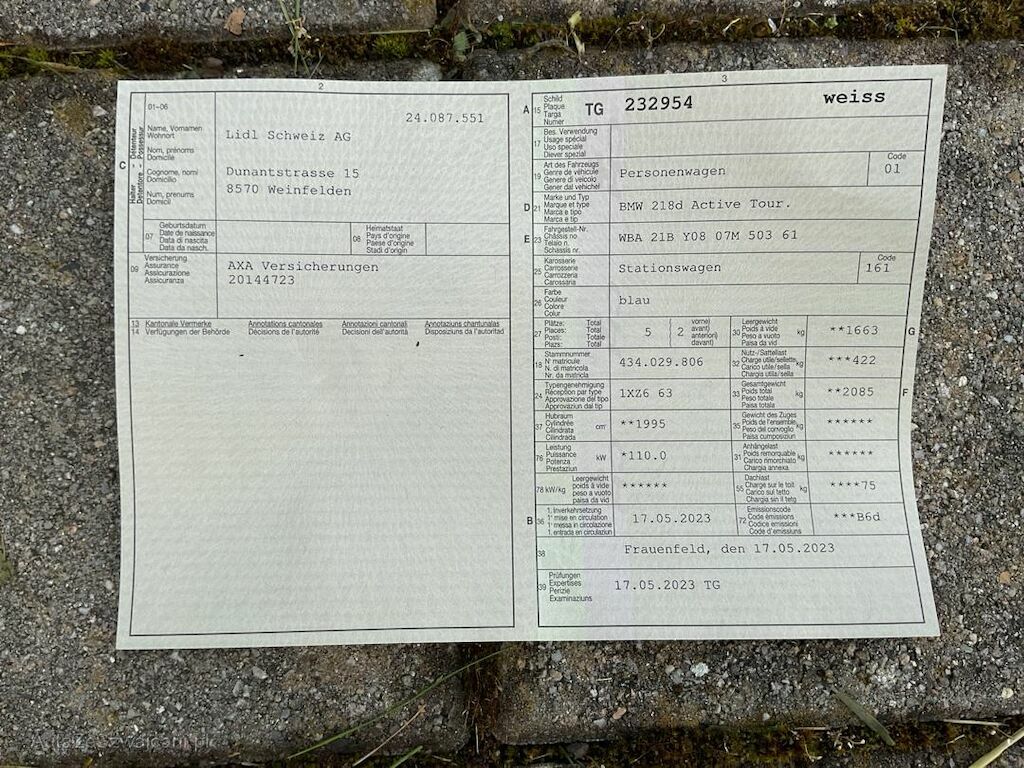 2
01–06
24.087.551
C
Halter - Détenteur
Detentore - Possessur
Name, Vornamen
Wohnort
Nom, prénoms
Domicile
Cognome, nomi
Domicilio
Num, prenums
Domicil
Lidl Schweiz AG
Dunantstrasse 15
8570 Weinfelden
07
Geburtsdatum
Date de naissance
Data di nascita
Data da nasch.
08
Heimatstaat
Pays d'origine
Paese d'origine
Stadi d'origin
09
Versicherung
Assurance
Assicurazione
Assicuranza
AXA Versicherungen
20144723
13 Kantonale Vermerke Annotations cantonales Annotazioni cantonali Annotaziuns chantunalas
14 Verfügungen der Behörde Décisions de l'autorité Decisioni dell'autorità Disposiziuns da l'autoritad
3
A 15
Schild
Plaque
Targa
Numer
TG 232954 weiss
17
Bes. Verwendung
Usage spécial
Uso speciale
Diever spezial
19
Art des Fahrzeugs
Genre de véhicule
Genere di veicolo
Gener dal vehichel
Personenwagen
Code
01
D 21
Marke und Typ
Marque et type
Marca e tipo
Marca e tip
BMW 218d Active Tour.
E 23
Fahrgestell-Nr.
Châssis no
Telaio n.
Schassis nr.
WBA 21B Y08 07M 503 61
25
Karosserie
Carrosserie
Carrozzeria
Carossaria
Stationswagen
Code
161
26
Farbe
Couleur
Colore
Colur
blau
27
Plätze: Total
Places: Total
Posti: Totale
Plazs: Total
5
2
vorne)
avant)
anteriori)
davant)
30
Leergewicht
Poids à vide
Peso a vuoto
Paisa da vid
kg
**1663
G
18
Stammnummer
N° matricule
N. di matricola
Nr. da matricla
434.029.806
32
Nutz-/Sattellast
Charge utile/sellette
Carico utile/sella
Chargia utila/sella
kg
***422
24
Typengenehmigung
Réception par type
Approvazione del tipo
Approvaziun dal tip
1XZ6 63
33
Gesamtgewicht
Poids total
Peso totale
Paisa totala
kg
**2085
F
37
Hubraum
Cylindrée
Cilindrata
Cilindrada
cm³
**1995
35
Gewicht des Zuges
Poids de l'ensemble
Peso del convoglio
Paisa cumposiziun
kg
******
76
Leistung
Puissance
Potenza
Prestaziun
kW
*110.0
31
Anhängelast
Poids remorquable
Carico rimorchiato
Chargia annexa
kg
******
78 kW/kg
Leergewicht
poids à vide
peso a vuoto
paisa da vid
******
55
Dachlast
Charge sur le toit
Carico sul tetto
Chargia sin il tetg
kg
****75
B 36
1. Inverkehrsetzung
1re mise en circulation
1a messa in circolazione
1. entrada en circulaziun
17.05.2023
72
Emissionscode
Code émissions
Codice emissioni
Code d'emissiuns
***B6d
38
Frauenfeld, den 17.05.2023
39
Prüfungen
Expertises
Perizie
Examinaziuns
17.05.2023 TG